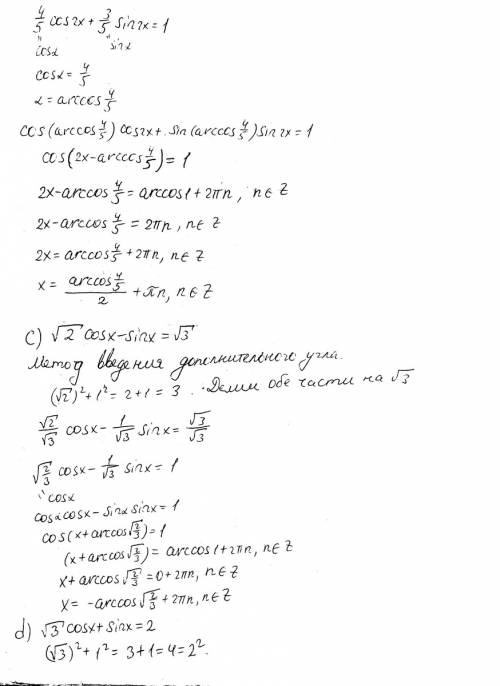 4/5 cos2x + 3/5 sin2x = 1
" "
cosα sinα
cosα = 4/5
α = arccos 4/5
cos(arccos 4/5) cos2x + sin(arccos 4/5) sin2x = 1
cos(2x - arccos 4/5) = 1
2x - arccos 4/5 = arccos1 + 2πn, n∈Z
2x - arccos 4/5 = 2πn, n∈Z
2x = arccos 4/5 + 2πn, n∈Z
x = (arccos 4/5)/2 + πn, n∈Z
c) √2 cosx - sinx = √3
Метод введения дополнительного угла.
(√2)² + 1² = 2 + 1 = 3. Делим обе части на √3
√2/√3 cosx - 1/√3 sinx = √3/√3
√(2/3) cosx - 1/√3 sinx = 1
" cosα
cosα cosx - sinα sinx = 1
cos(x + arccos√(2/3)) = 1
(x + arccos√(2/3)) = arccos1 + 2πn, n∈Z
x + arccos√(2/3) = 0 + 2πn, n∈Z
x = -arccos√(2/3) + 2πn, n∈Z
d) √3 cosx + sinx = 2
(√3)² + 1² = 3 + 1 = 4 = 2².